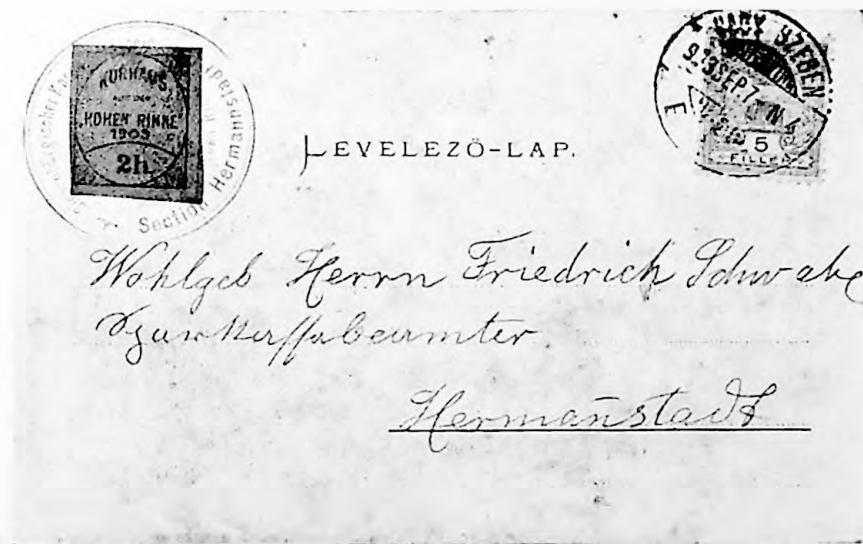 KURHAUS
AUF DER
"HOHEN RINNE"
1903
2h.
Section Hermannstadt
NAGY SZEBEN
903 SEP 7
5
FILLÉR
LEVELEZŐ-LAP.
Wohlgeb Herrn Friedrich Schwabe
Sparkassabeamter
Hermañstadt